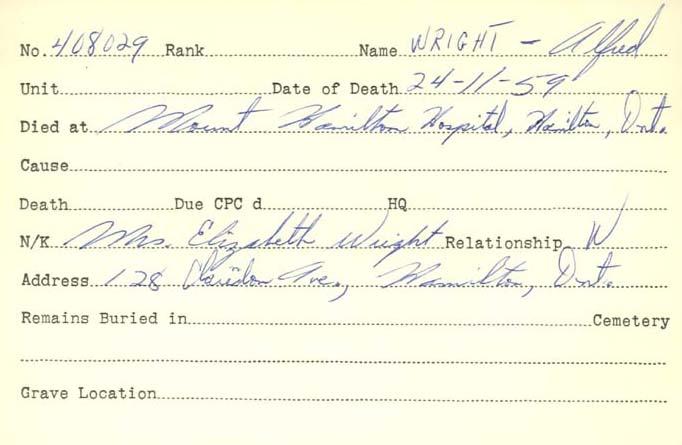 No. 408029 Rank Name WRIGHT - Alfred
Unit Date of Death 24-11-59
Died at Mount Hamilton Hospital, Hamilton, Ont.
Cause
Death Due CPC d HQ
N/K Mrs. Elizabeth Wright Relationship W
Address 128 Ave., Hamilton, Ont.
Remains Buried in Cemetery
Grave Location